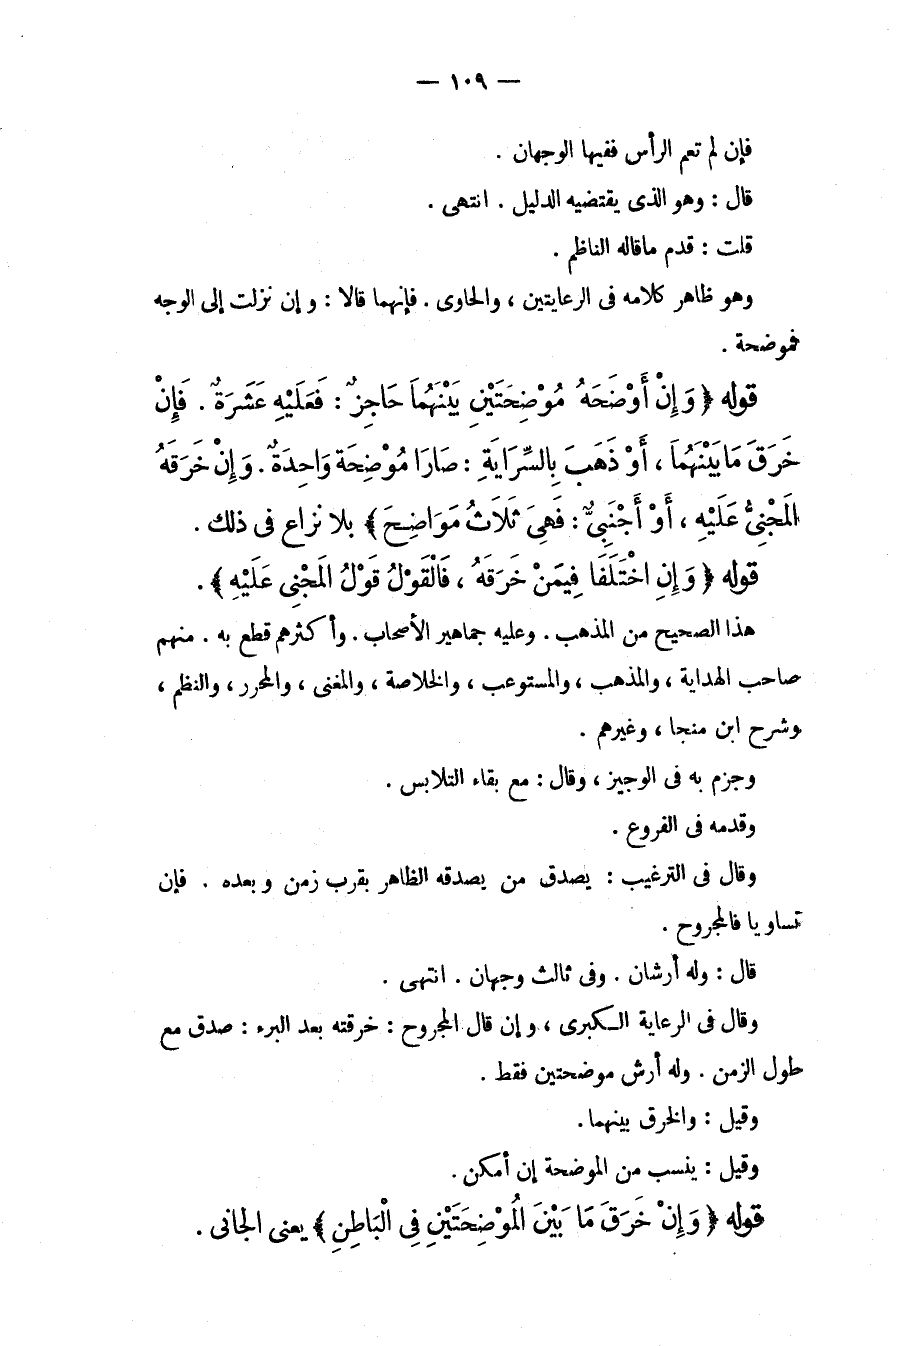 — ١٠٩ —
فإن لم تعم الرأس ففيها الوجهان .
قال : وهو الذى يقتضيه الدليل . انتهى .
قلت : قدم ماقاله الناظم .
وهو ظاهر كلامه فى الرعايتين ، والحاوى . فإنهما قالا : وإن نزلت إلى الوجه
فموضحة .
قوله ﴿ وَإِنْ أَوْضَحَهُ مُوْضِحَتَيْنِ بَيْنَهُمَا حَاجِزٌ : فَعَلَيْهِ عَشَرَةٌ . فَإِنْ
خَرَقَ مَا بَيْنَهُمَا ، أَوْ ذَهَبَ بِالسِّرَايَةِ : صَارَا مُوْضِحَةً وَاحِدَةً . وَإِنْ خَرَقَهُ
المَجْنِىُّ عَلَيْهِ ، أَوْ أَجْنَبِىٌّ : فَهِىَ ثَلَاثُ مَوَاضِحَ ﴾ بلا نزاع فى ذلك .
قوله ﴿ وَإِنِ اخْتَلَفَا فِيمَنْ خَرَقَهُ ، فَالْقَوْلُ قَوْلُ المَجْنِى عَلَيْهِ ﴾ .
هذا الصحيح من المذهب . وعليه جماهير الأصحاب . وأكثرهم قطع به . منهم
صاحب الهداية ، والمذهب ، والمستوعب ، والخلاصة ، والمغنى ، والمحرر ، والنظم ،
وشرح ابن منجا ، وغيرهم .
وجزم به فى الوجيز ، وقال : مع بقاء التلابس .
وقدمه فى الفروع .
وقال فى الترغيب : يصدق من يصدقه الظاهر بقرب زمن وبعده . فإن
تساويا فالمجروح .
قال : وله أرشان . وفى ثالث وجهان . انتهى .
وقال فى الرعاية الكبرى ، وإن قال المجروح : خرقته بعد البرء : صدق مع
طول الزمن . وله أرش موضحتين فقط .
وقيل : والخرق بينهما .
وقيل : ينسب من الموضحة إن أمكن .
قوله ﴿ وَإِنْ خَرَقَ مَا بَيْنَ الْمُوْضِحَتَيْنِ فِى الْبَاطِنِ ﴾ يعنى الجانى .